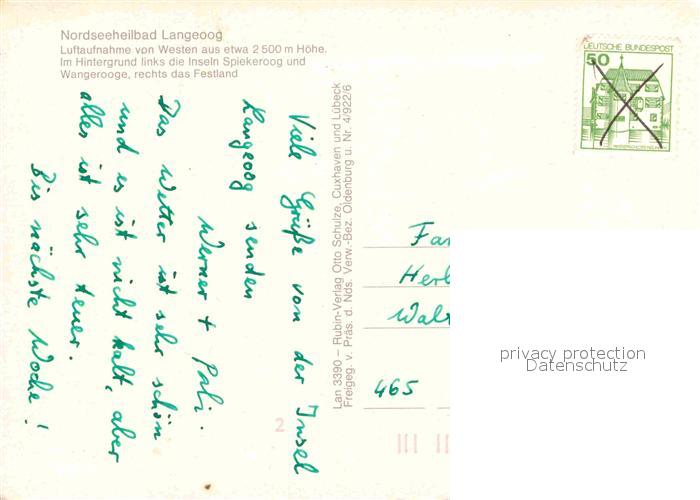 Nordseeheilbad Langeoog
Luftaufnahme von Westen aus etwa 2500 m Höhe.
Im Hintergrund links die Inseln Spiekeroog und
Wangerooge, rechts das Festland
Viele Grüße von der Insel
Langeoog senden
Werner +
Das Wetter ist sehr schön
und es ist nicht kalt, aber
alles ist sehr teuer.
Bis nächste Woche!
Lan 3390 – Rubin-Verlag Otto Schulze, Cuxhaven und Lübeck
Freigeg. v. Präs. d. Nds. Verw.-Bez. Oldenburg u. Nr. 4/922/6
DEUTSCHE BUNDESPOST
50
Fam
Herb
465
2
privacy protection
Datenschutz